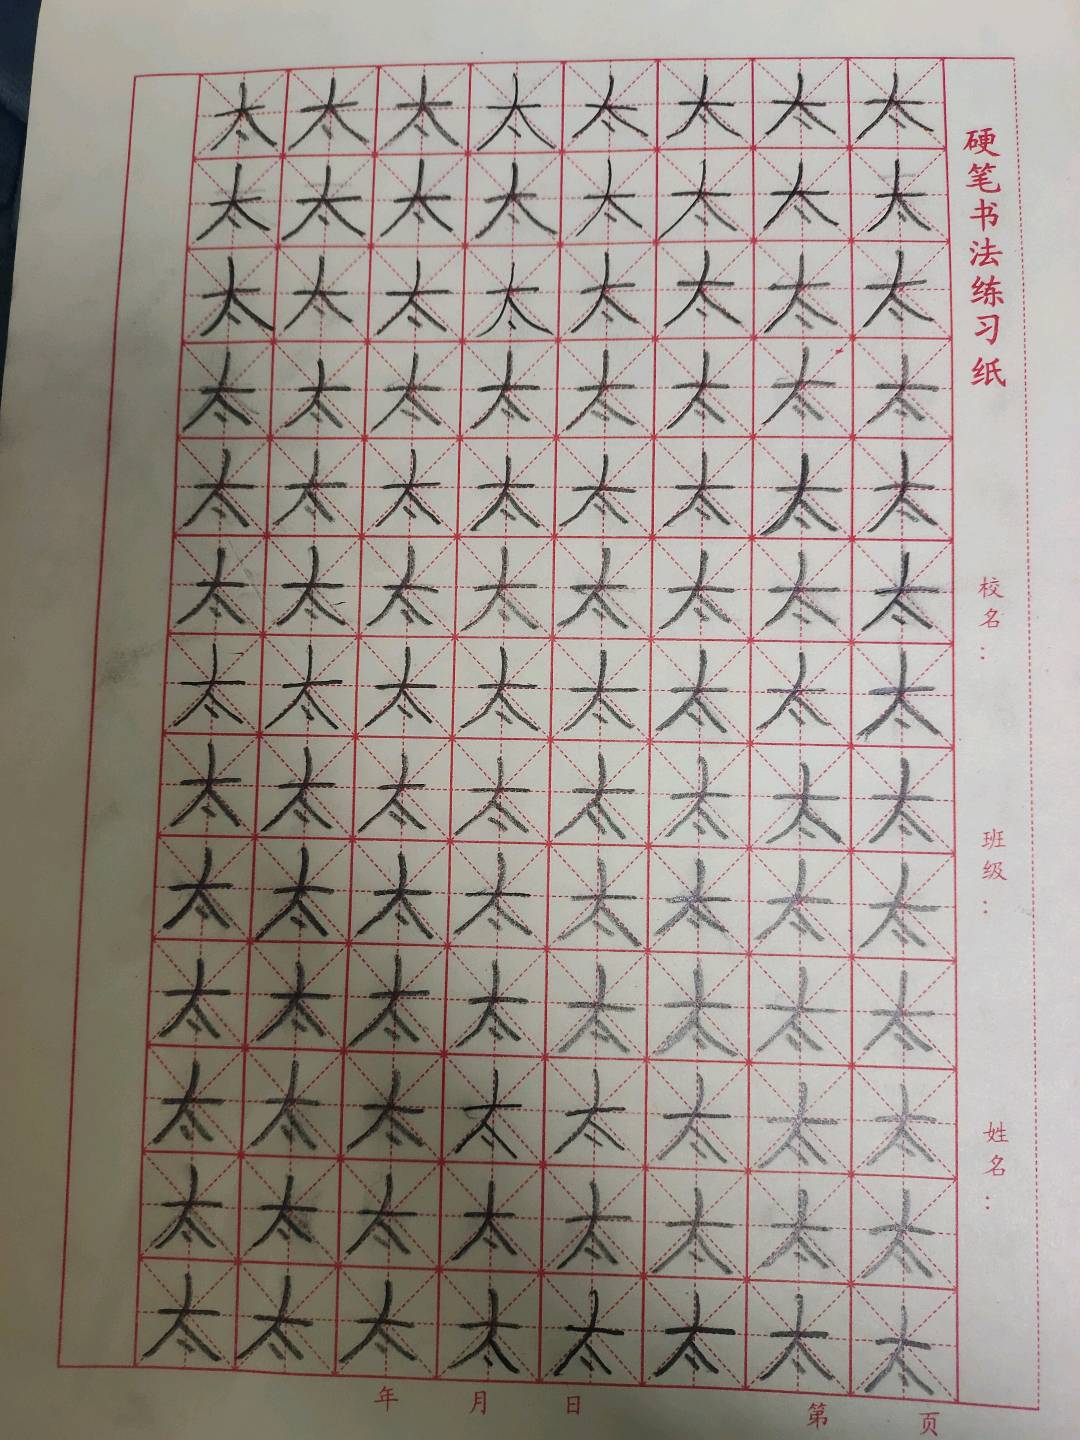 硬笔书法练习纸
校名：
班级：
姓名：
太太太太太太太太
太太太太太太太太
太太太太太太太太
太太太太太太太太
太太太太太太太太
太太太太太太太太
太太太太太太太太
太太太太太太太太
太太太太太太太太
太太太太太太太太
太太太太太太太太
太太太太太太太太
太太太太太太太太
年 月 日 第 页